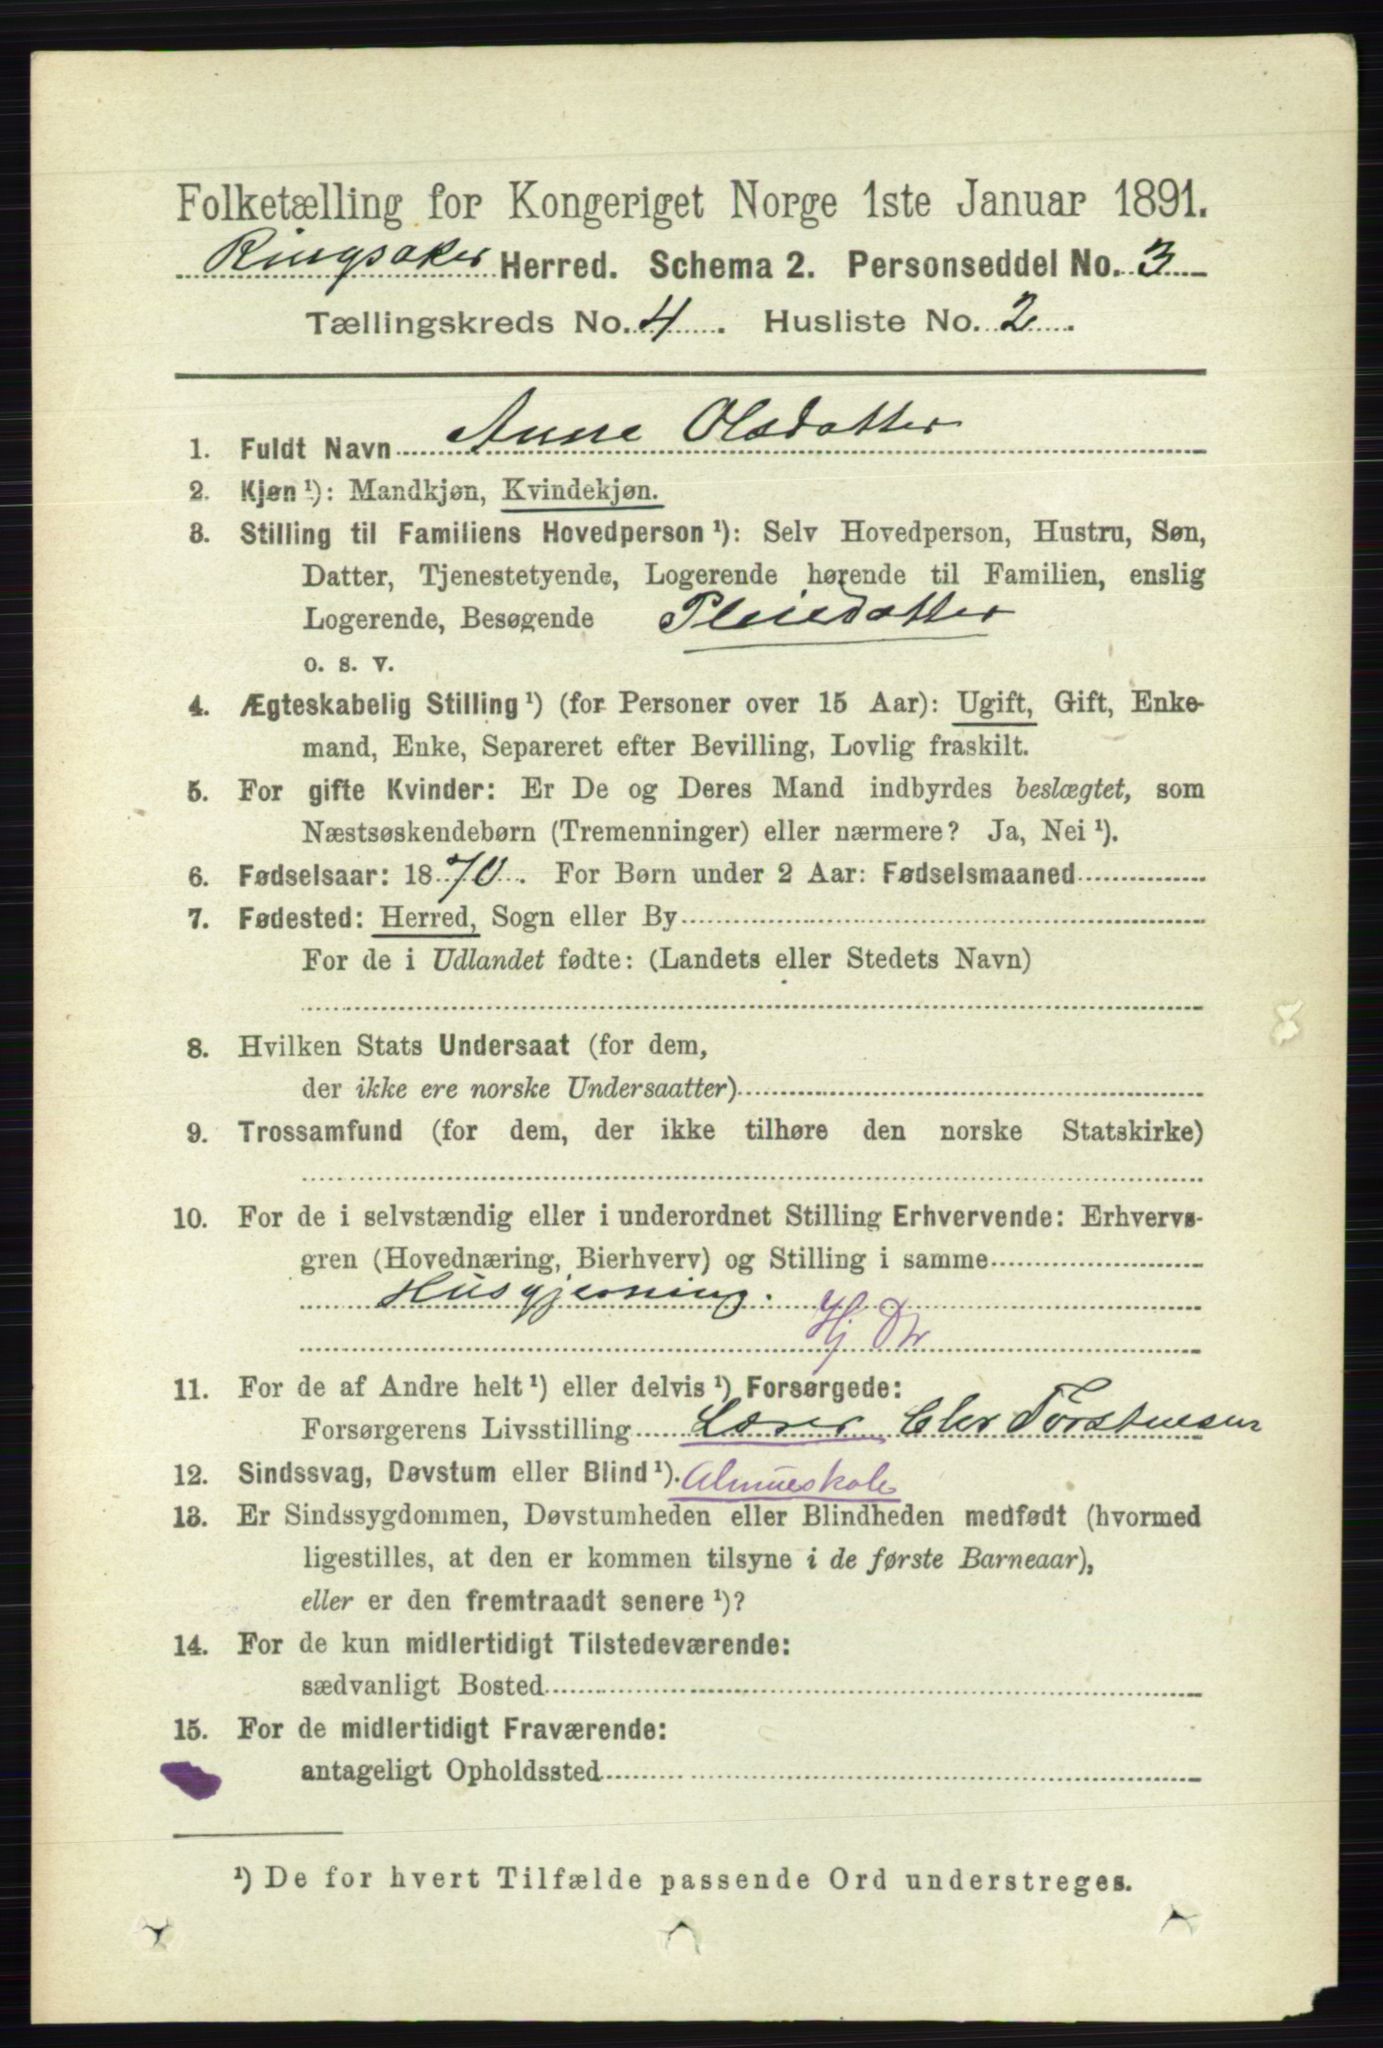 Folketælling for Kongeriget Norge 1ste Januar 1891.
Ringsaker Herred. Schema 2. Personseddel No. 3
Tællingskreds No. 4. Husliste No. 2.
1. Fuldt Navn Anne Olsdatter
2. Kjøn ¹): Mandkjøn, Kvindekjøn.
3. Stilling til Familiens Hovedperson ¹): Selv Hovedperson, Hustru, Søn,
Datter, Tjenestetyende, Logerende hørende til Familien, enslig
Logerende, Besøgende Pleiedatter
o. s. v.
4. Ægteskabelig Stilling ¹) (for Personer over 15 Aar): Ugift, Gift, Enke-
mand, Enke, Separeret efter Bevilling, Lovlig fraskilt.
5. For gifte Kvinder: Er De og Deres Mand indbyrdes beslægtet, som
Næstsøskendebørn (Tremenninger) eller nærmere? Ja, Nei ¹).
6. Fødselsaar: 1870. For Børn under 2 Aar: Fødselsmaaned
7. Fødested: Herred, Sogn eller By
For de i Udlandet fødte: (Landets eller Stedets Navn)
8. Hvilken Stats Undersaat (for dem,
der ikke ere norske Undersaatter)
9. Trossamfund (for dem, der ikke tilhøre den norske Statskirke)
10. For de i selvstændig eller i underordnet Stilling Erhvervende: Erhvervs-
gren (Hovednæring, Bierhverv) og Stilling i samme
Husgjerning.
Hj Dtr
11. For de af Andre helt ¹) eller delvis ¹) Forsørgede:
Forsørgerens Livsstilling Lærer Torstensen
12. Sindssvag, Døvstum eller Blind ¹). Almueskole
13. Er Sindssygdommen, Døvstumheden eller Blindheden medfødt (hvormed
ligestilles, at den er kommen tilsyne i de første Barneaar),
eller er den fremtraadt senere ¹)?
14. For de kun midlertidigt Tilstedeværende:
sædvanligt Bosted
15. For de midlertidigt Fraværende:
antageligt Opholdssted
¹) De for hvert Tilfælde passende Ord understreges.